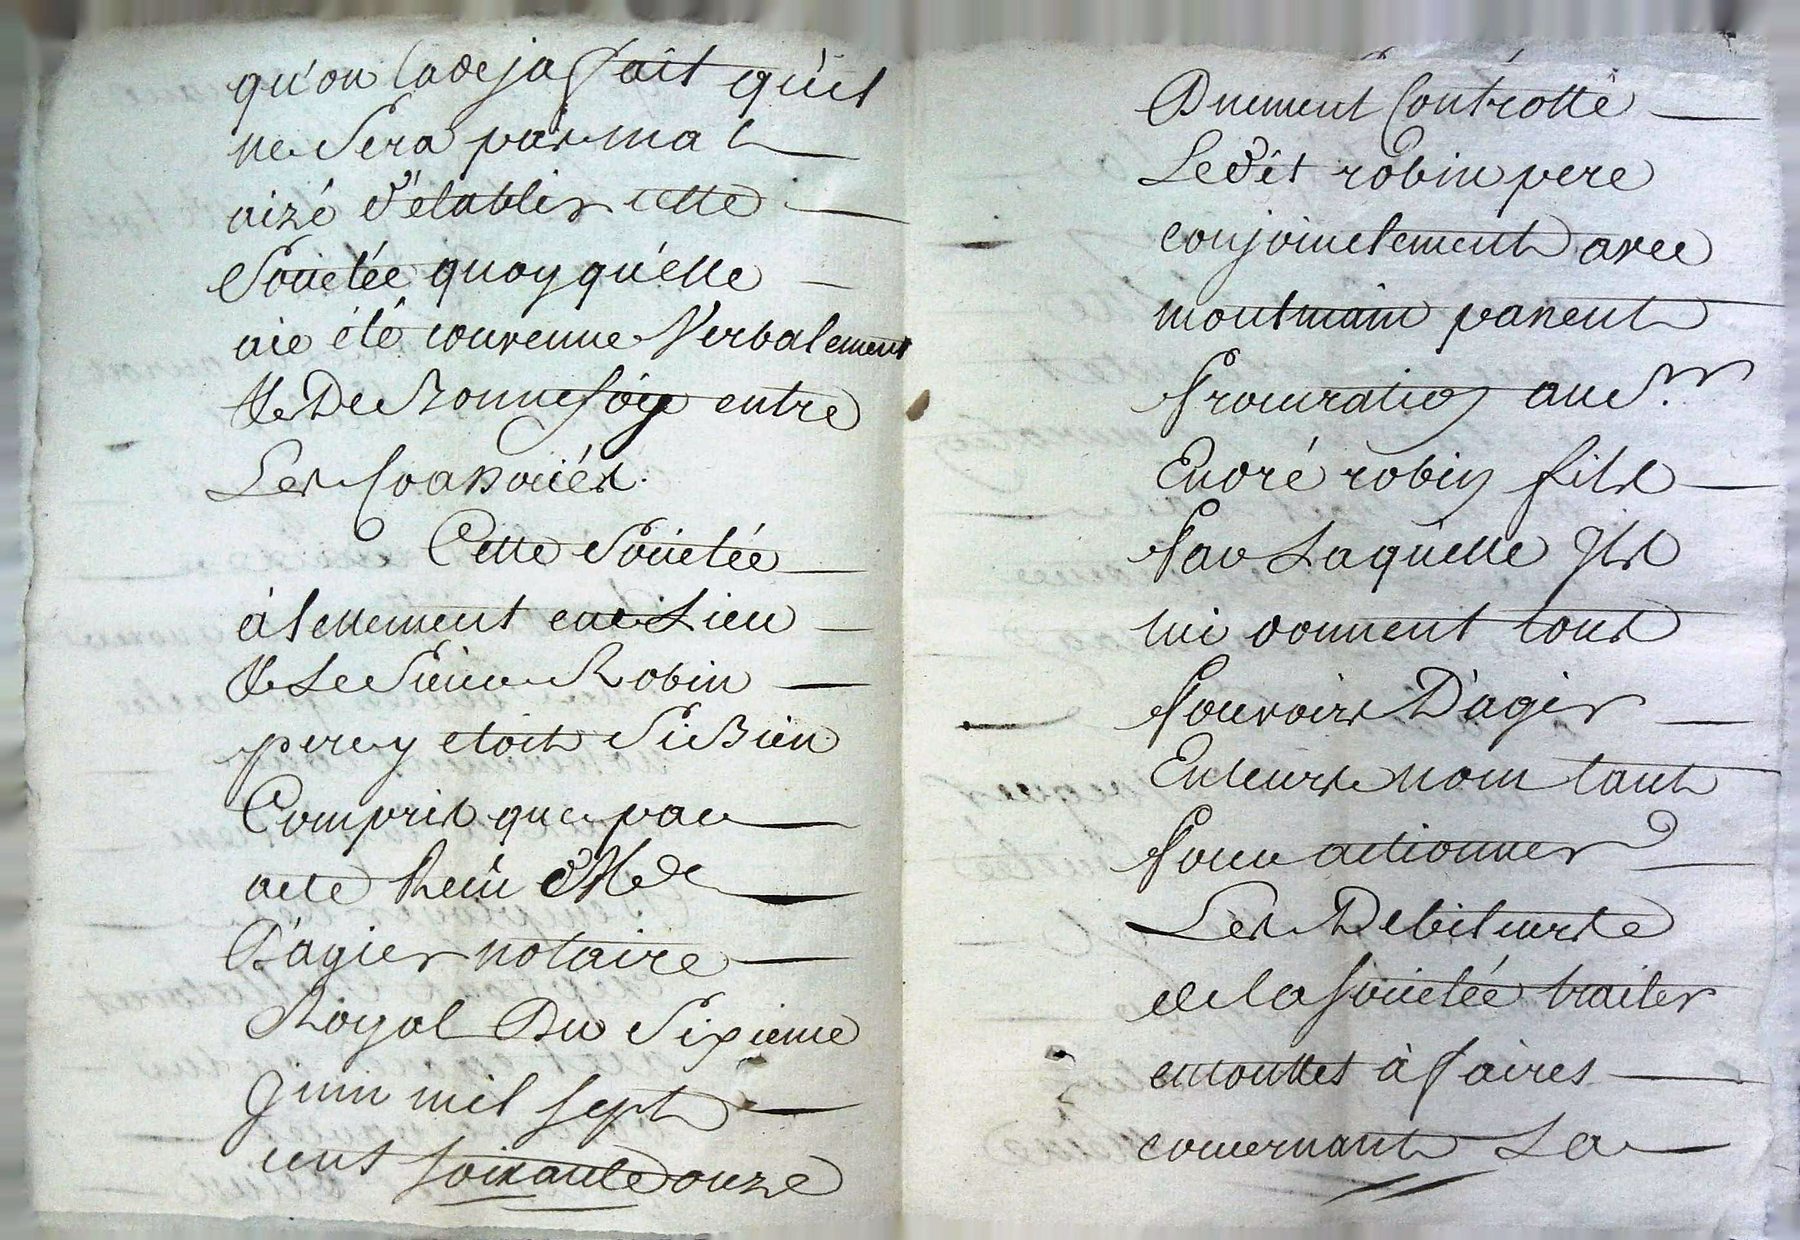 qu'on la deja fait qu'il
ne sera pas mal
aizé d'établir cette
Societée quoy qu'elle
aie été convenue Verbalement
& De Bonne foy entre
Les Coassociés.
Cette Societée
à tellement eue Lieu
& Le Sieur Robin
pere y etoit Si Bien
Compris que par
acte Recu Me
Dagier notaire
Royal Du Sixieme
Juin mil sept
cent soixante onze
Duement Controllé
Le dit robin pere
conjoinctement avec
montmain passent
Procuration au Sr.
André robin fils
Par Laquelle Ils
lui donnent tous
Pouvoirs D'agir
En leurs nom tant
Pour actionner
Les Debiteurs
de la Societée traiter
en touttes àfaires
concernant La